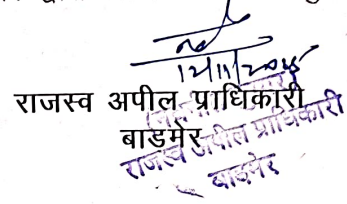 12/11/2025
राजस्व अपील प्राधिकारी
बाडमेर
राजस्व अपील प्राधिकारी
बाड़मेर